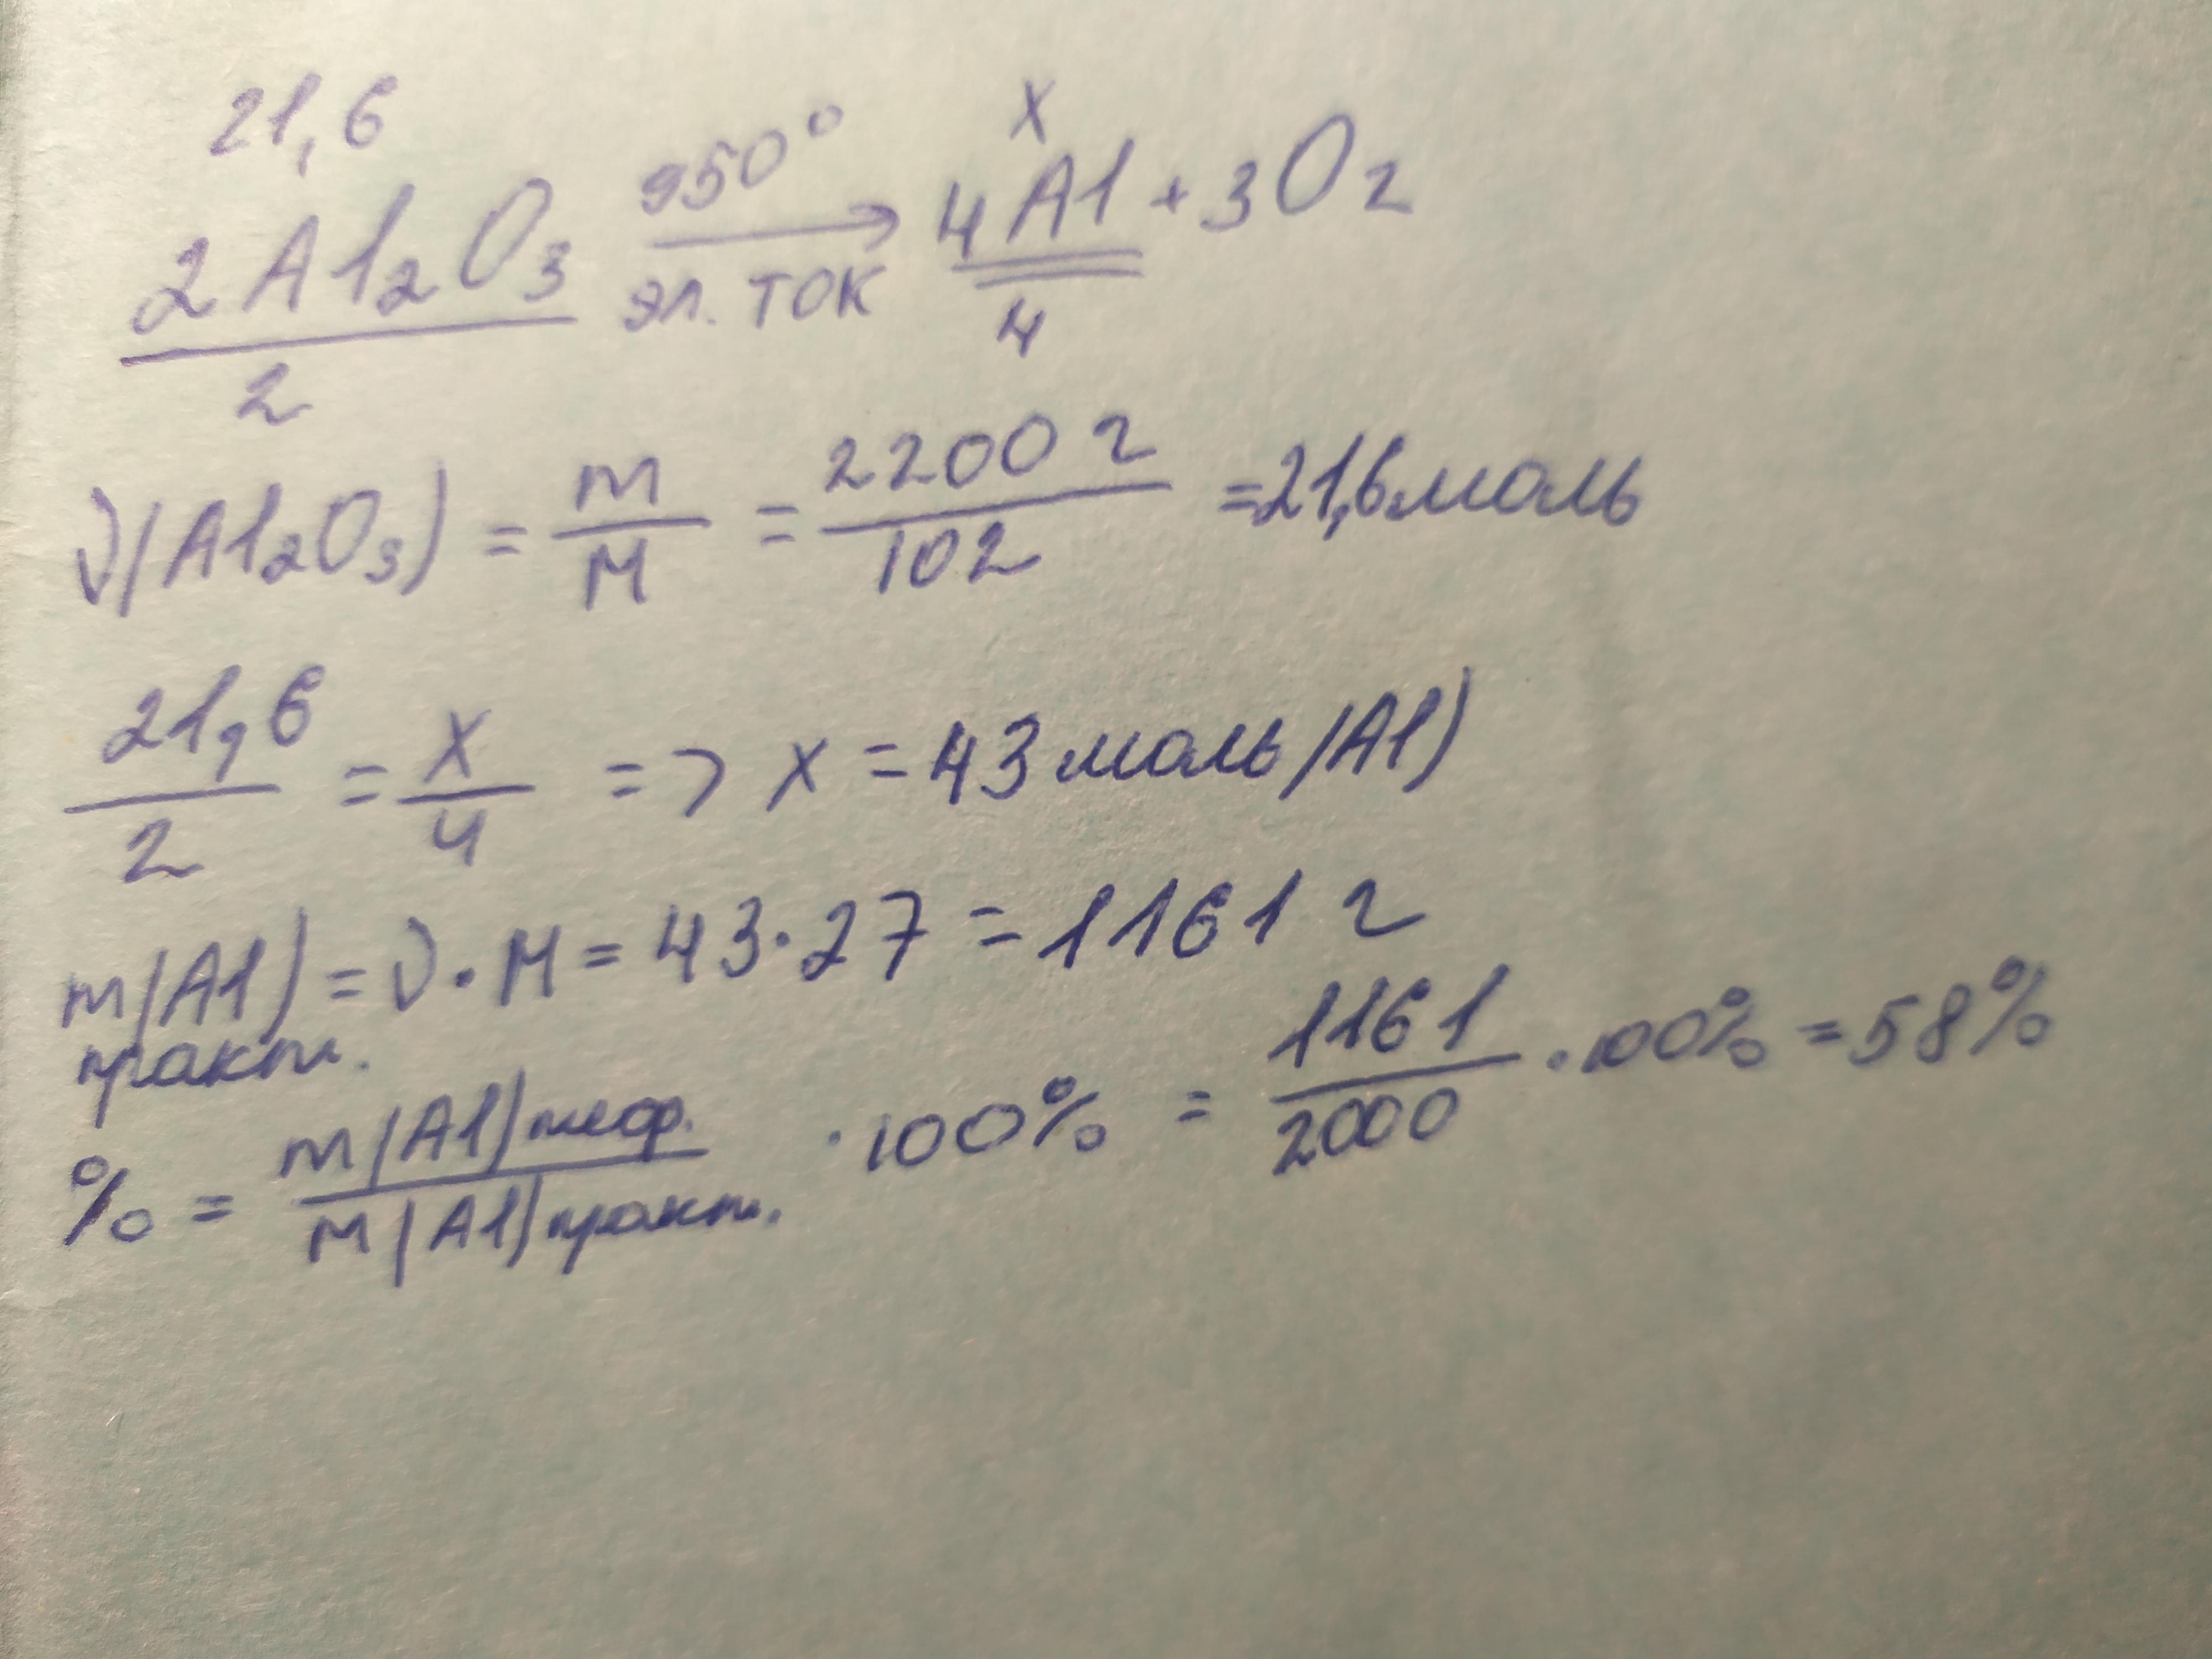 21,6 x
2Al₂O₃ 950° эл. ток → 4Al + 3O₂
2 4
ν(Al₂O₃) = m/M = 2200 г/102 = 21,6 моль
21,6/2 = x/4 => x = 43 моль (Al)
m(Al) = ν · M = 43 · 27 = 1161 г
практ.
% = m(Al)теор./M(Al)практ. · 100% = 1161/2000 · 100% = 58%